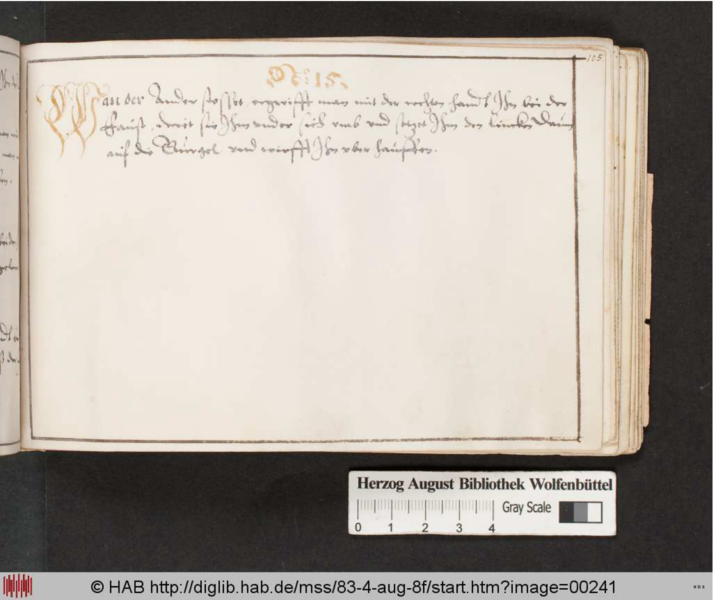 105
No: 15.
Wan der Ander stosset, ergreifft man mit der rechten handt Ihn bei der
faust, dreit sie Ihm under sich umb und setzet Ihm den lincken Daum
auf die Gurgel und wirfft Ihn uber hauffen.
Herzog August Bibliothek Wolfenbüttel
Gray Scale
0 1 2 3 4
© HAB http://diglib.hab.de/mss/83-4-aug-8f/start.htm?image=00241